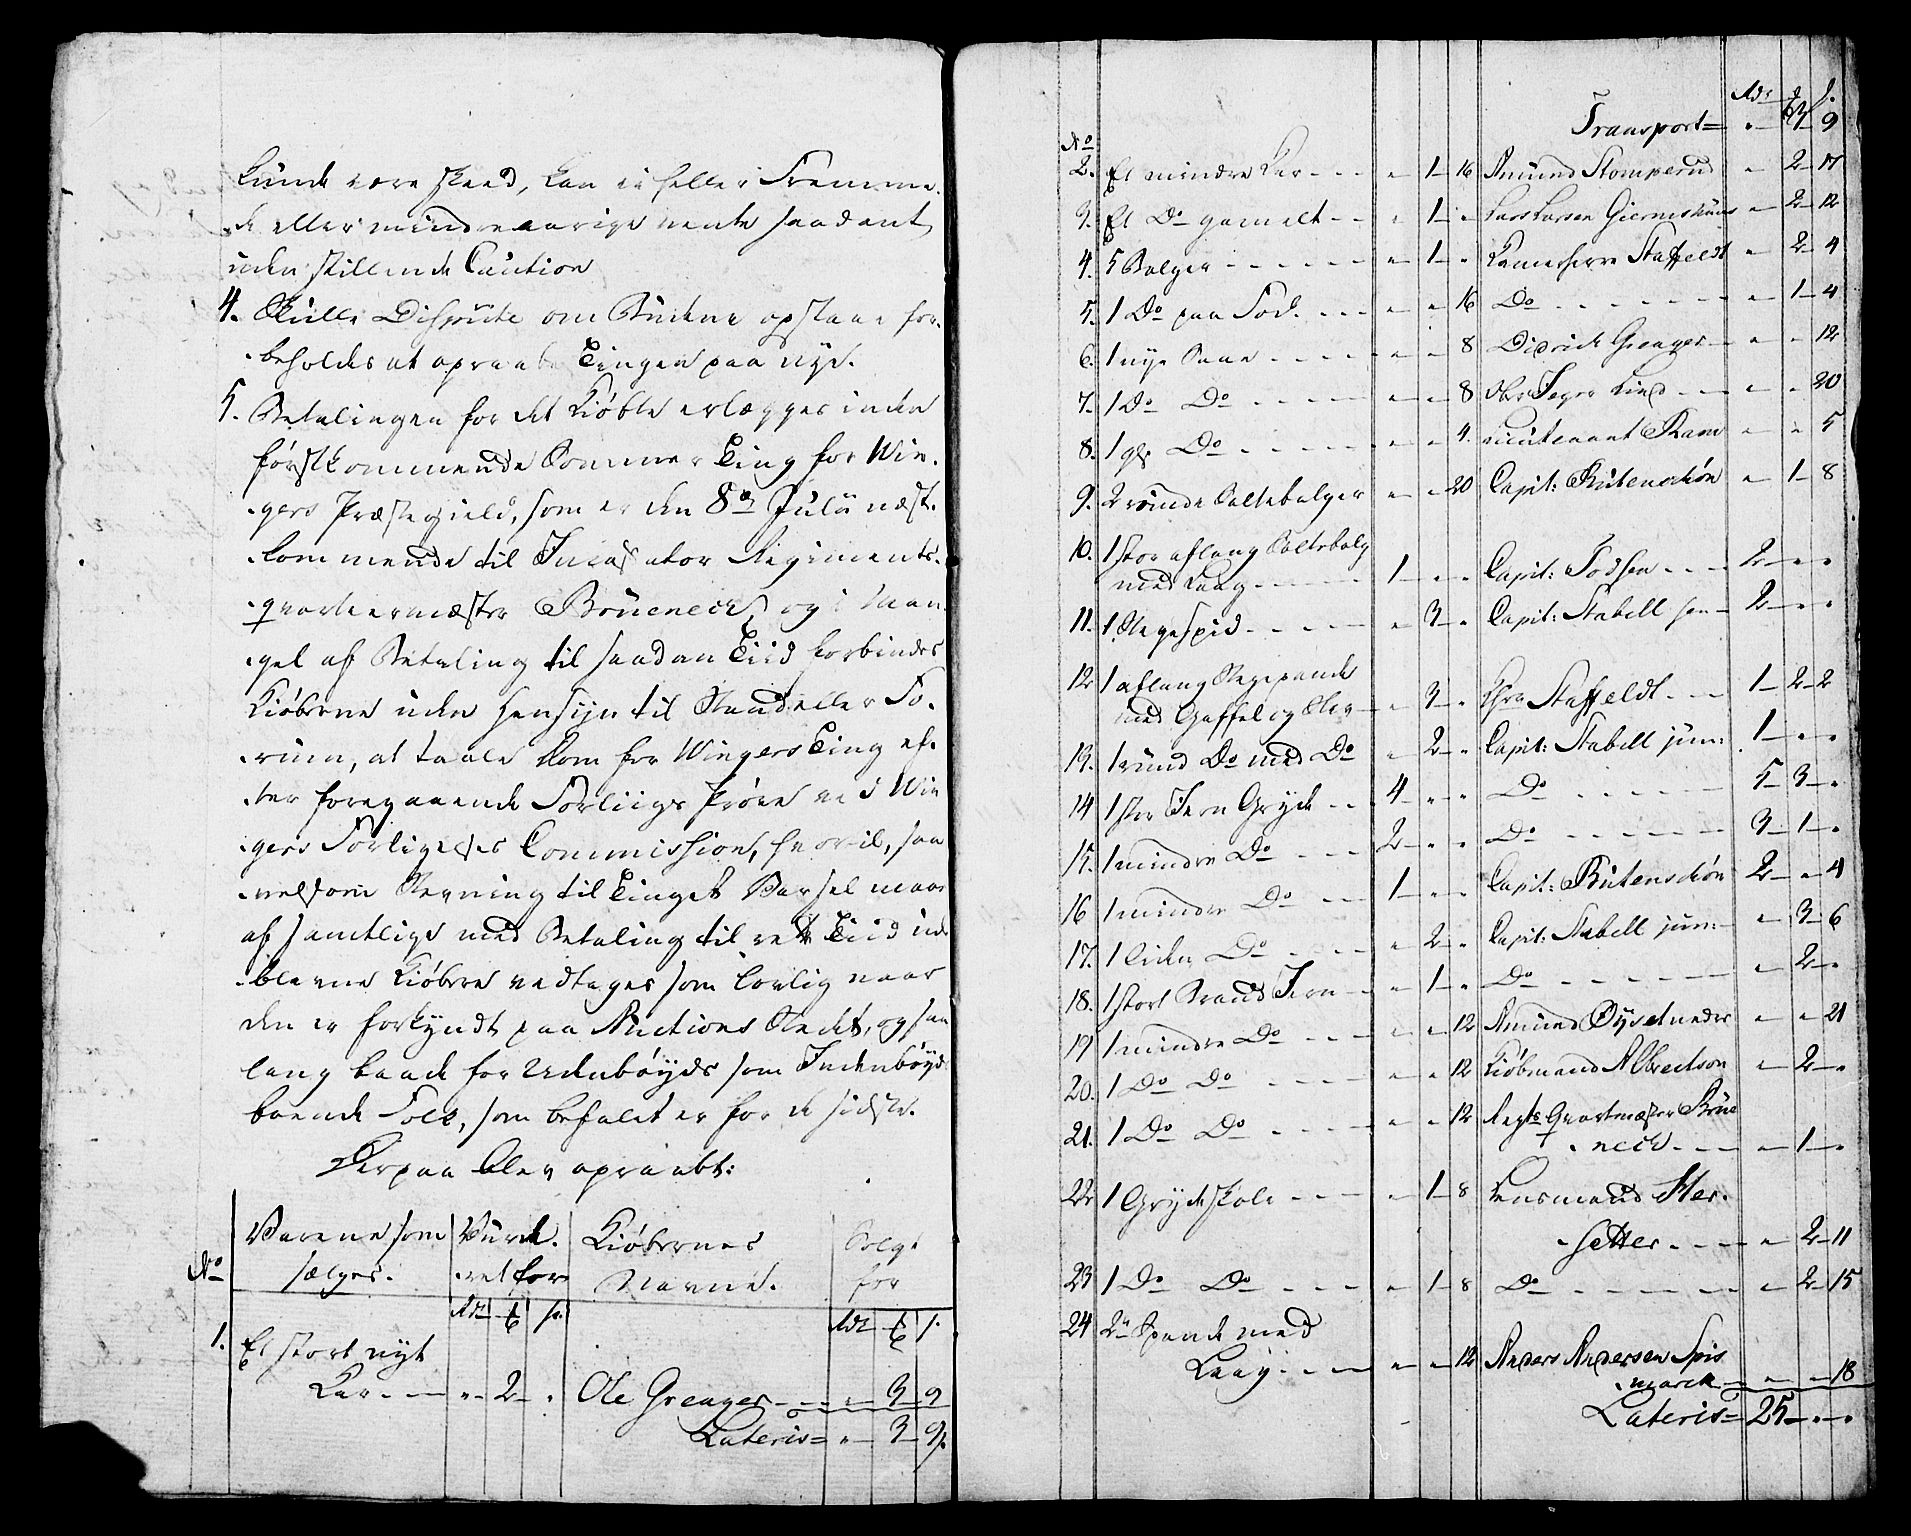 kunde være skeed, kan ei heller Fremme-
de eller mindreaarige vente saadant
uden stillende Caution
4. Skulle Dispute om Budene opstaae for-
beholdes at opraabe Tingen paa nye.
5. Betalingen for det Kiøbte erlægges inden
førstkommende Sommer Ting for Win-
gers Præstegield, som er den 8de Julii næst-
kommende til Incassator Regiments-
qvarteermæster Brüneck, og i Man-
gel af Betaling til saadan Tiid forbindes
Kiøberne uden Hensyn til Stand eller Fo-
rum, at taale Dom for Wingers Ting ef-
ter foregaaende Forliigs Prøve ved Win
gers Forligelses Commission, hvortil, saa
velsom Stevning til Tinget Varsel maae
af samtlige med Betaling til rette Tiid ude
blevne Kiøbere vedtages som lovlig naar
den er forkyndt paa Auctions Stedet, og saa
lang baade for Udenbøyds som Indenbøyds
boende Folk, som befalet er for de sidste.
Derpaa blev opraabt:
No Varene som sælges. Vurde-ret for Kiøbernes Navne. Solgt for
Rdr ʒ s. Rdr ʒ s.
1. Et stort nyt
Kar - - " - 2 - " Ole Greager - - " - 3 - 9
Lateris = " - 3 - 9
Rdr ʒ s.
Transport = " - 3 - 9
No
2. Et mindre Kar - - - " - 1 - 16 Amund Stomperud " - 2 - 17
3. Et Do gamelt - - " - 1 - " Lars Larsen Giermshuus " - 2 - 12
4. 5 Balger - - - - " - 1 - " Kamerherre Staffeldt " - 2 - 4
5. 1 Do paa Fod. - - - " - " 16 Do - - - - " - 1 - 4
6. 1 nye Saae - - - - " - " 8 Didrich Greager - - " - " 12
7. 1 Do Do - - - - " - " 8 Ober Jeger Lind - - " - " 20
8. 1 gl. Do - - - - " - " 4. Lieutenant Ram " - " 5
9. 2 runde Saltebalger " - " 20 Capit: Rütenschiøn " - 1 - 8
10. 1 stor aflang Saltebalg
med Laag - - - - 1 - " - " Capit: Todsen - - - 2 - " - "
11. 1 Stegespid - - - - " - 3 - " Capit: Stabell sen - 2 - " - "
12 1 aflang Stegepande
med Gaffel og Skee - " - 3 - " Khre Staffeldt - - 1 - 2 - 2
13. 1 rund Do med Do " - 2 - " Capit: Stabell jun: 1 - " - "
14 1 stor Jern Gryde - - 4 - " - " Do - - - - 5 - 3 - "
15. 1 mindre Do - - - 2 - " - " Do - - - - 3 - 1 - "
16 1 mindre Do - - 1 - " - " Capit: Rütenschiøn 2 - " - 4
17. 1 liden Do - - - " - 2 - " Capit: Stabell jun: - " - 3 - 6
18. 1 stort Brand Jern - - " - 1 - " Do - - - - " - 2 - "
19 1 mindre Do - - - " - " 12 Amund Øyset nedre " - " - 21
20. 1 Do Do - - - - " - " 12 Kiøbmand Albrectson " - 2 - "
21. 1 Do Do - - - - " - " 12 Regts Qvartmæster Brüe
neck - - - " - 1 - "
22 1 Grydeskole - - - " - 1 - 8 Lensmand Hes-
setter - - - " - 2 - 11
23 1 Do Do - - - " - 1 - 8 Do - - - - " - 2 - 15
24 2de Spande med
Laag - - - " - " 12 Anders Andersen Spis
marck - " - " - 18
Lateris = 25 - " - "